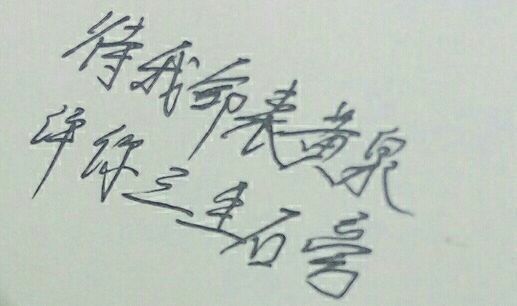 待我命丧黄泉
许你三生石旁